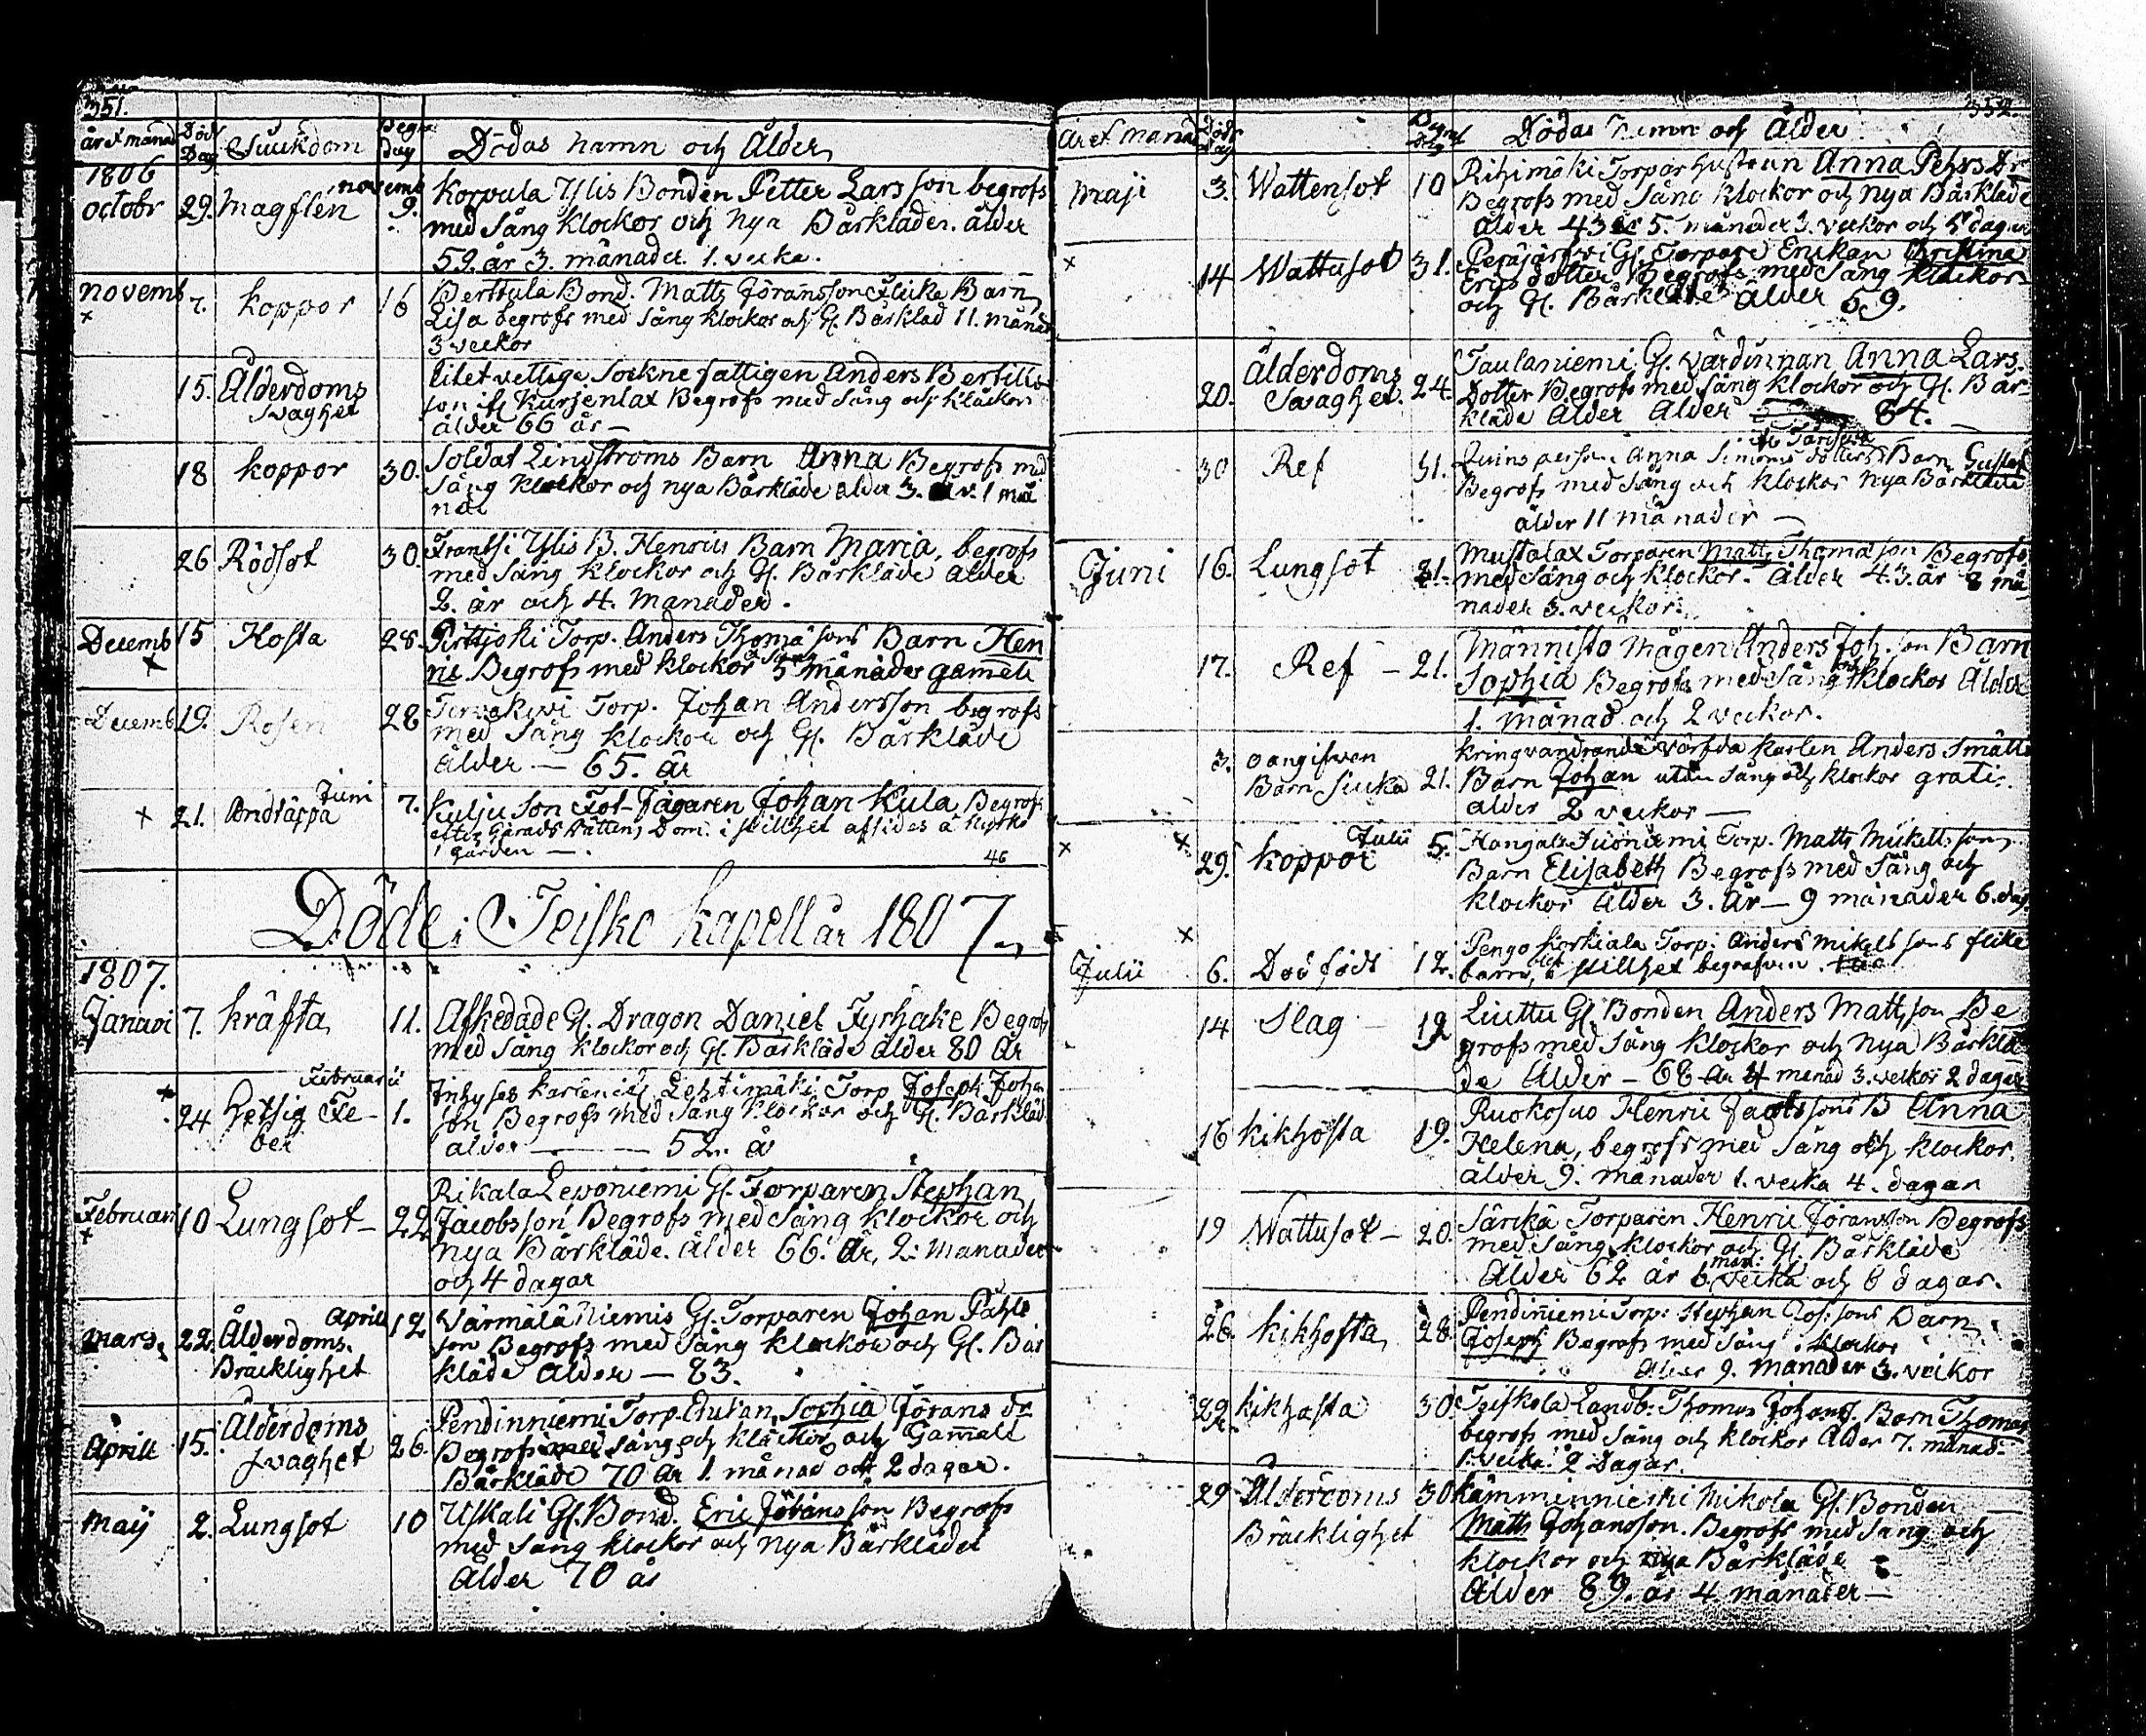 351.
år et månad Döds Dag Siuukdom Begr: dag Dödas namn och Ålder
1806
octobr 29. Magflen novemb 9. Korvula Yllis Bonden Petter Larsson begrofs
med Sång klockor och nya Bårkläder. ålder
59. år 3. månader 1. vecka.
novemb 7. koppor 16 Berttula Bond. Matts Jöransson flicke Barn
Lisa begrofs med sång klockor och Gl. Bårkläd 11. månad
3 veckor
15. Ålderdoms svaghet Sockne fattigen Anders Bertills
son Kurjenlax Begrofs med sång och klockor
ålder 66 år —
18 koppor 30. Soldat Lindströms Barn Anna Begrofs med
Sång klockor och nya Bårkläde ålder 3. 1 må
nad
26 Rödsot 30. Frantsi Yllis B. Henrics Barn Maria, begrofs
med sång klockor och Gl. Bårkläde ålder
2. år och 4. månader.
Decemb 15 Hosta 28. Pirttjoki Torp. Anders Thomäsons Barn Hen
ric Begrofs med klockor 5 månader gammell
Decemb 19. Rosen 28 Torp. Johan Andersson begrofs
med sång klockor och Gl. Bårkläde
Ålder — 65. år
21. Andtäppa Juni 7. Kulju son Fot-Jägaren Johan Kula Begrof
efter Härads Rättens Dom. i stillhet afsides å kyrko
gården —.
46
Döde i Teisko kapell år 1807.
1807.
Januari 7. kräfta 11. Afskedade Gl. Dragon Daniel Fyrhake Begrofs
med sång klockor och Gl. Bårkläde ålder 80 år
24 hetsig Fe-
ber Februarii 1. Lehtimäki Torp Joseph Johan
son Begrofs med sång klockor och Gl. Bårkläd
ålder — 52. år
Februari 10 Lungsot 22 Rikala Levoniemi Gl. Torparen Stephan
Jacobsson Begrofs med sång klockor och
nya Bårkläde. ålder 66. år, 2. Månader
och 4 dagar
Mars. 22. Ålderdoms. Bräcklighet Aprill 12 Wärmälä Niemis Gl. Torparen Johan Påhls
son Begrofs med sång klockor och Gl. Bår
kläde Ålder — 83.
Aprill 15. Ålderdoms svaghet 26. Pendinniemi Torp. Enkan Sophia Jörans dr
Begrofs med sång och klockor och Gammalt
Bårkläde 70 år 1. månad och 2 dagar.
Maij 2. Lungsot 10 Uskali Gl. Bond. Eric Jöransson Begrofs
med sång klockor och nya Bårklädet
Ålder 70 år
352.
År et månad Döds Dag Begraf dag Dödas namn och Ålder
Maji 3. Wattensot 10 Rihimäki Torpar hustrun Anna Pehrs Dr
Begrofs med sång klockor och nya Bårkläde
Ålder 43 år 5. månader 3. veckor och 5 dagar
14 Wattusot 31. Peräjärfvi Gl. Torpare Enkan Christina
Ericsdotter Begrofs med sång klockor
och Gl. Bårkläde Ålder 59.
20. Ålderdoms Svaghet. 24. Taulaniemi Gl. värdinnan Anna Lars.
Dotter Begrofs med sång klockor och Gl. Bår-
kläde Ålder Ålder 84.
30 Ref 31. Quinspersons Anna Simons dotters Barn Gustaf
Begrofs med sång och klockor nya Bårkläde
ålder 11 månader —
Juni 16. Lungsot 21. Mustalax Torparen Matts Thomasson Begrofs
med sång och klockor. Ålder 43. år 8 må
nader 3. veckor.
17. Ref — 21. Männistö Mågen Anders Joh. son Barn
Sophia Begrofs med sång och klockor Ålder
1. månad och 2 veckor.
3. oangifven Barn Siuka 21. kringvandrande värfda karlen Anders Smätt
Barn Johan utan sång och klockor gratis.
ålder 2 veckor —
29. koppor Julii 5. Torp. Matts Mickelsson
Barn Elisabeth Begrofs med sång och
klockor Ålder 3. år — 9 månader 6. dag.
Julii 6. Död född 12. Pengo Korkiala Torp: Anders Mikels sons flicke
barn, i stillhet begrafven.
14 Slag 19 Liuttu Gl. Bonden Anders Mattsson Be
grofs med sång klockor och nya Bårklä
de Ålder — 68 år 4 månad 3. veckor 2 dagar
16 kikhosta 19. Ruokosuo Henric Jacobssons B Anna
Helena, begrofs med sång och klockor.
ålder 9. månader 1. vecka 4. dagar
19 Wattusot — 20. Särkä Torparen Henric Jöransson Begrofs
med sång klockor och Gl. Bårkläde
Ålder 62 år 6 mån: vecka och 6 dagar.
26. kikhosta 28. Pendinniemi Torp: Stephan Jos: sons Barn
Joseph Begrofs med sång klockor
Ålder 9. månader 3. veckor
29 kikhosta 30. Teiskola Landb: Thomas Johans. Barn Thomas
begrofs med sång och klockor Ålder 7. månad:
1 vecka 2 Dagar.
29 Ålderdoms Bräcklighet 30 Kämminniemi Mikola Gl. Bonden
Matts Johansson. Begrofs med sång och
klockor och nya Bårkläde
Ålder 89. år 4 månader —